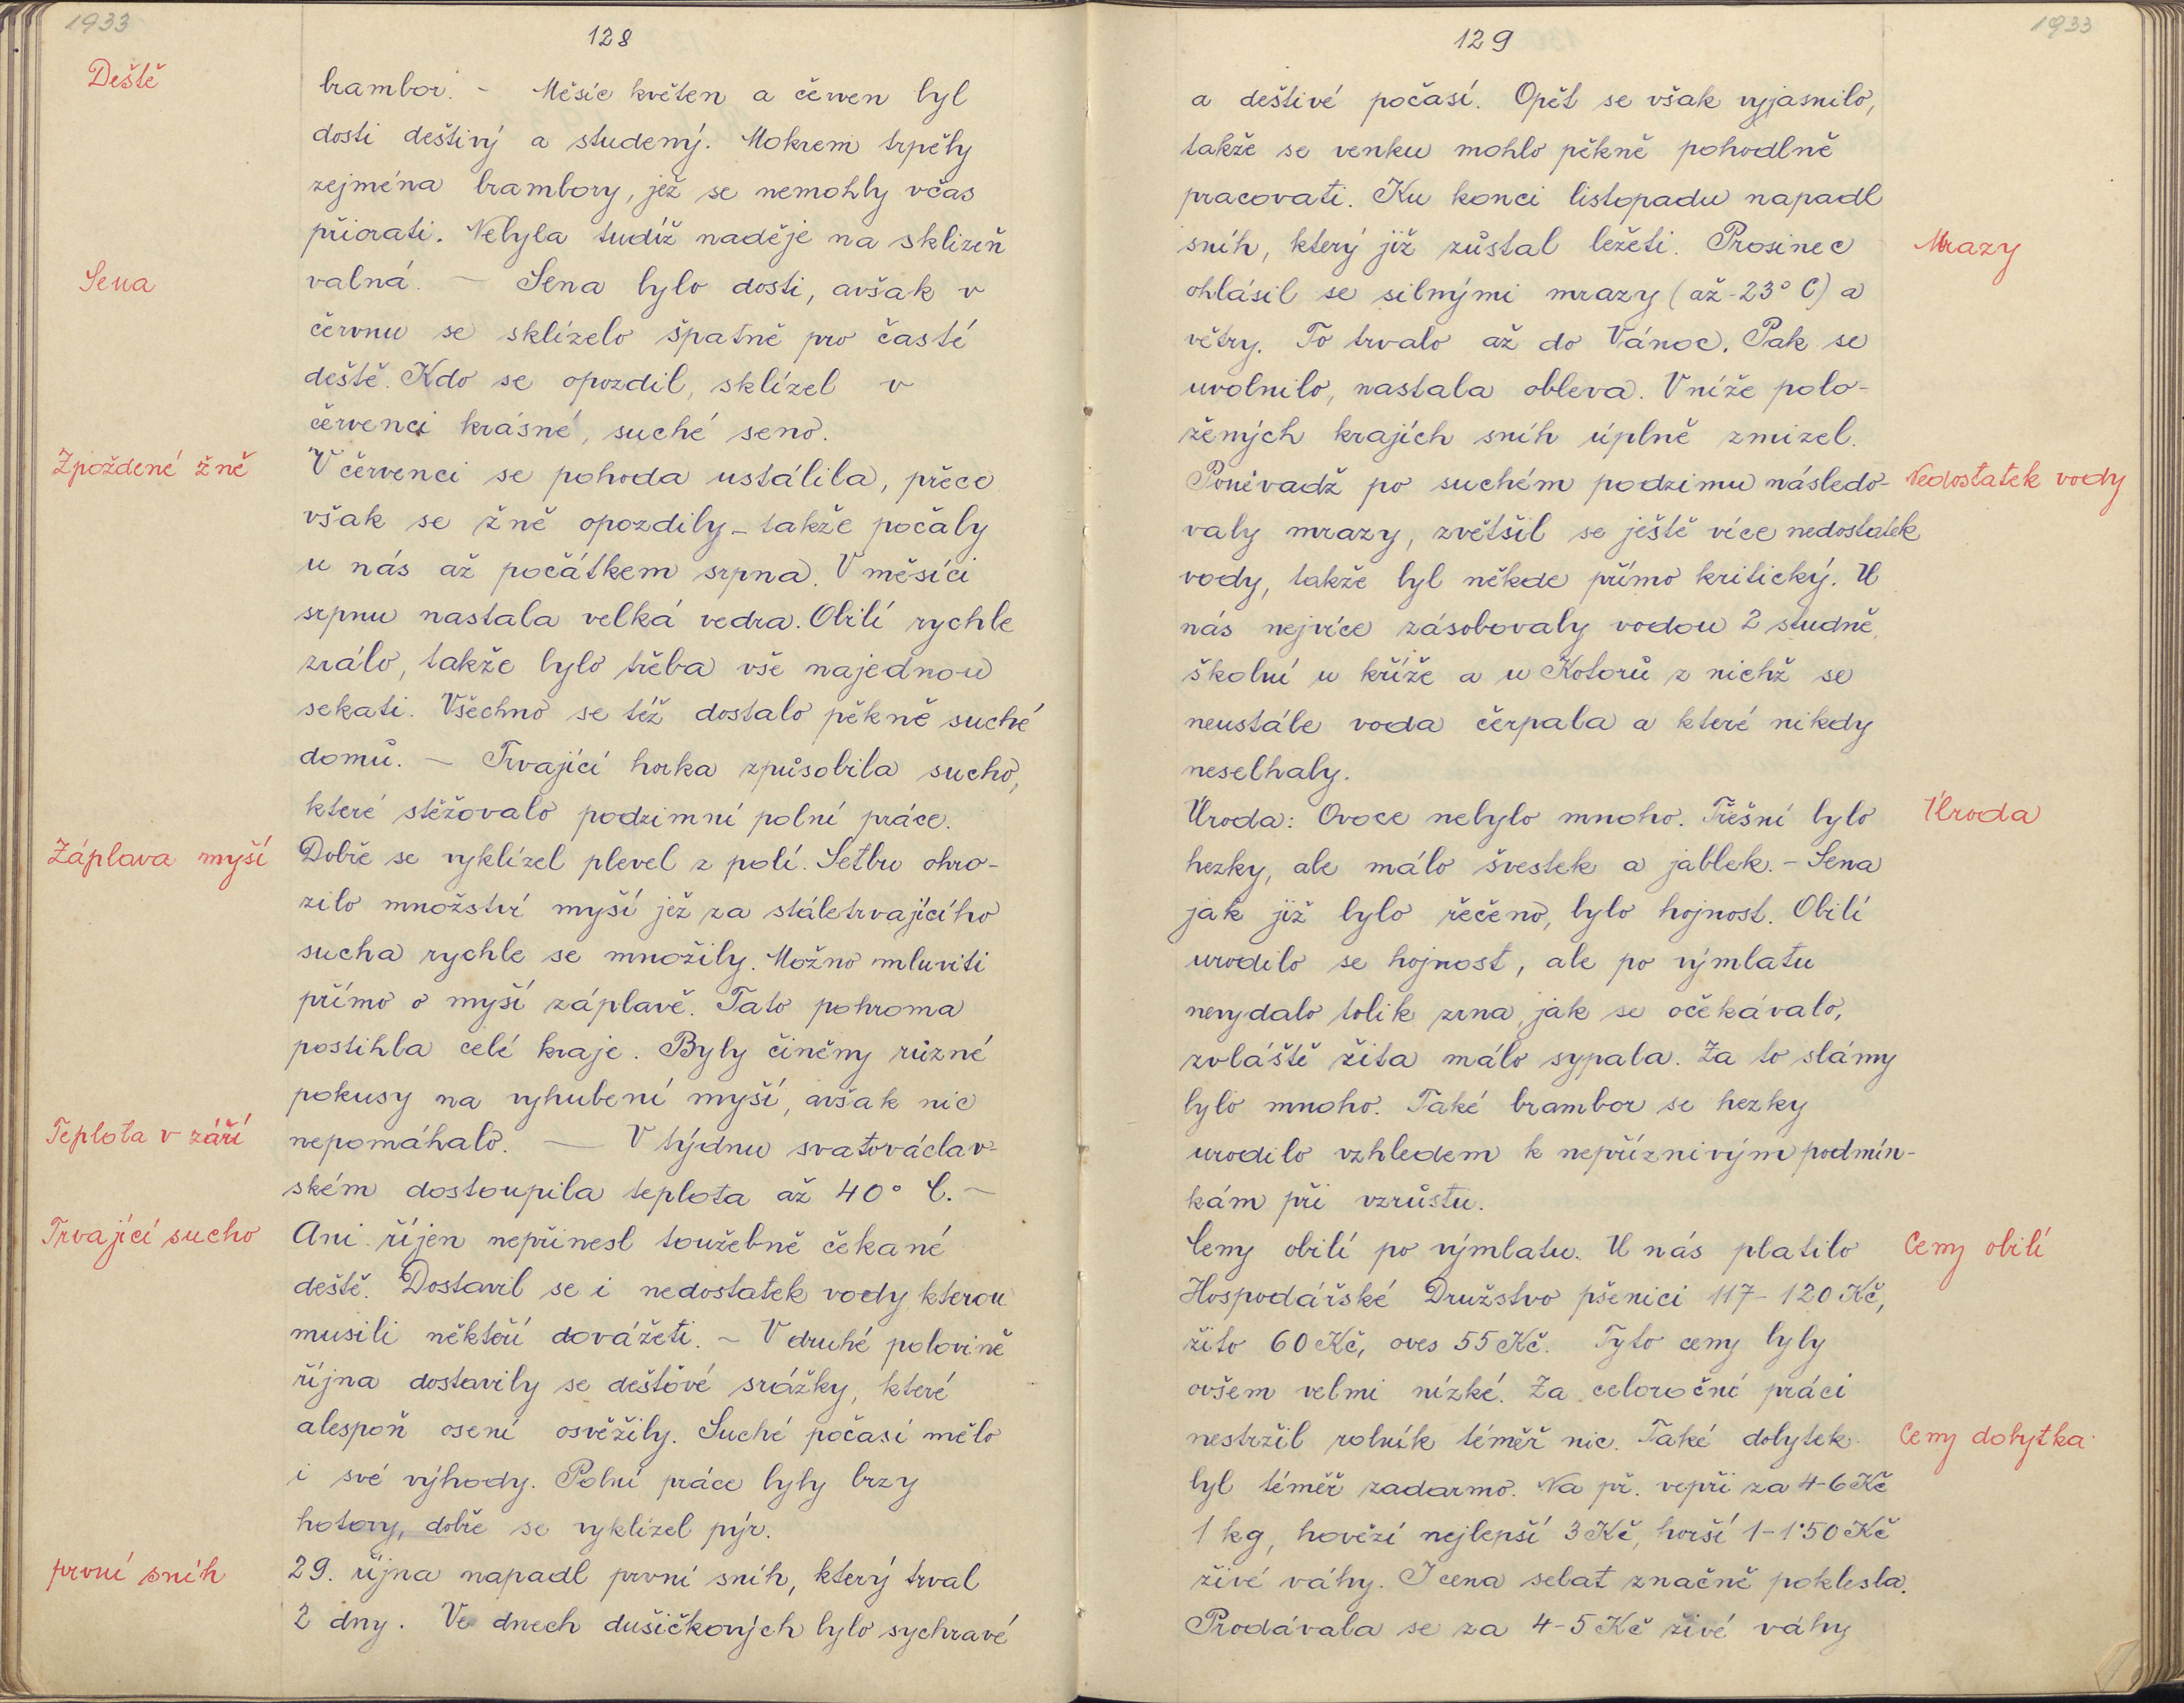 1933
128
Deště
brambor. - Měsíc květen a červen byl
dosti deštivý a studený. Mokrem trpěly
zejména brambory, jež se nemohly včas
přiorati. Nebyla tudíž naděje na sklizeň
Sena
valná. - Sena bylo dosti, avšak v
červnu se sklízelo špatně pro časté
deště. Kdo se opozdil, sklízel v
červenci krásné, suché seno.
Zpoždené žně
V červenci se pohoda ustálila, přece
však se žně opozdily - takže počaly
u nás až počátkem srpna. V měsíci
srpnu nastala velká vedra. Obilí rychle
zrálo, takže bylo třeba vše najednou
sekati. Všechno se též dostalo pěkně suché
domů. - Trvající horka způsobila sucho,
které stěžovalo podzimní polní práce.
Záplava myší
Dobře se vyklízel plevel z polí. Setbu ohro-
zilo množství myší jež za stáletrvajícího
sucha rychle se množily. Možno mluviti
přímo o myší záplavě. Tato pohroma
postihla celé kraje. Byly činěny různé
pokusy na vyhubení myší, avšak nic
Teplota v září
nepomáhalo. - V týdnu svatováclav-
ském dostoupila teplota až 40° C. -
Trvající sucho
Ani říjen nepřinesl toužebně čekané
deště. Dostavil se i nedostatek vody kterou
musili někteří dovážeti. - V druhé polovině
října dostavily se dešťové srážky, které
alespoň osení osvěžily. Suché počasí mělo
i své výhody. Polní práce byly brzy
hotovy, dobře se vyklízel pýr.
první sníh
29. října napadl první sníh, který trval
2 dny. Ve dnech dušičkových bylo sychravé
1933
129
a deštivé počasí. Opět se však vyjasnilo,
takže se venku mohlo pěkně pohodlně
pracovati. Ku konci listopadu napadl
sníh, který již zůstal ležeti. Prosinec
Mrazy
ohlásil se silnými mrazy (až -23° C) a
větry. To trvalo až do Vánoc. Pak se
uvolnilo, nastala obleva. V níže polo-
žených krajích sníh úplně zmizel.
Poněvadž po suchém podzimu následo-
Nedostatek vody
valy mrazy, zvětšil se ještě více nedostatek
vody, takže byl někde přímo kritický. U
nás nejvíce zásobovaly vodou 2 studně,
školní u kříže a u Kotorů z nichž se
neustále voda čerpala a které nikdy
neselhaly.
Úroda: Ovoce nebylo mnoho. Třešní bylo
Úroda
hezky, ale málo švestek a jablek. - Sena
jak již bylo řečeno, bylo hojnost. Obilí
urodilo se hojnost, ale po výmlatu
nevydalo tolik zrna, jak se očekávalo,
zvláště žita málo sypala. Za to slámy
bylo mnoho. Také brambor se hezky
urodilo vzhledem k nepříznivým podmín-
kám při vzrůstu.
Ceny obilí po výmlatu. U nás platilo
Ceny obilí
Hospodářské Družstvo pšenici 117-120 Kč,
žito 60 Kč, oves 55 Kč. Tyto ceny byly
ovšem velmi nízké. Za celoroční práci
nestržil rolník téměř nic. Také dobytek
Ceny dobytka
byl téměř zadarmo. Na př. vepři za 4-6 Kč
1 kg, hovězí nejlepší 3 Kč, horší 1-1·50 Kč
živé váhy. I cena selat značně poklesla.
Prodávala se za 4-5 Kč živé váhy